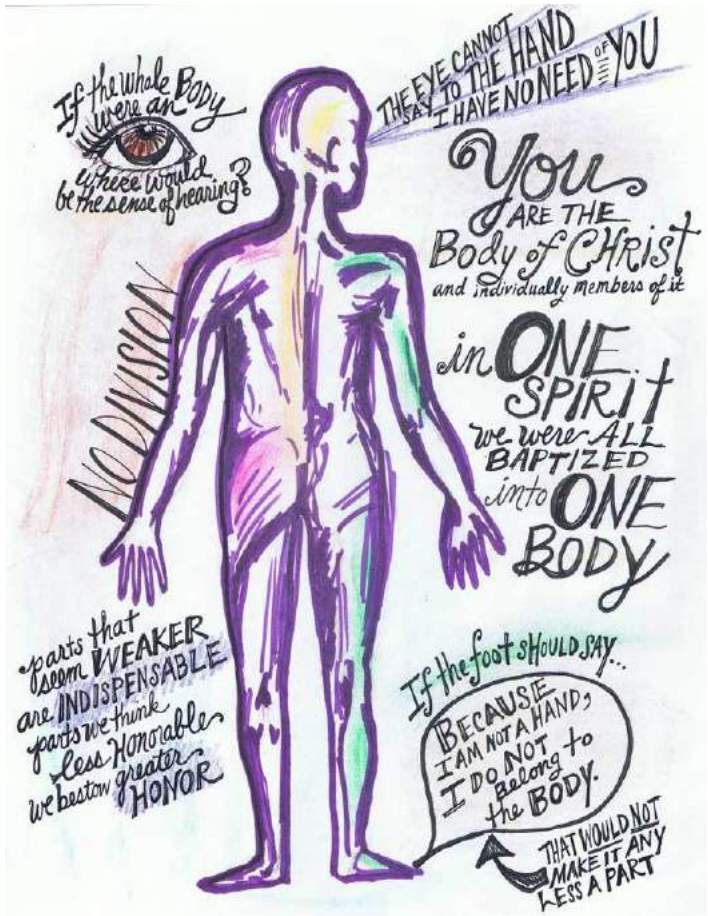 If the whole BODY
were an
where would
be the sense of hearing?
THE EYE CANNOT
SAY TO THE HAND
I HAVE NO NEED OF YOU
You
ARE THE
Body of CHRIST
and individually members of it
NO DIVISION
in ONE
SPIRIT
we were ALL
BAPTIZED
into ONE
BODY
parts that
seem WEAKER
are INDISPENSABLE
parts we think
less Honorable
we bestow greater
HONOR
If the foot sHOULD SAY...
BECAUSE
I AM NOT A HAND,
I DO NOT
Belong to
the BODY.
THAT WOULD NOT
MAKE IT ANY
LESS A PART